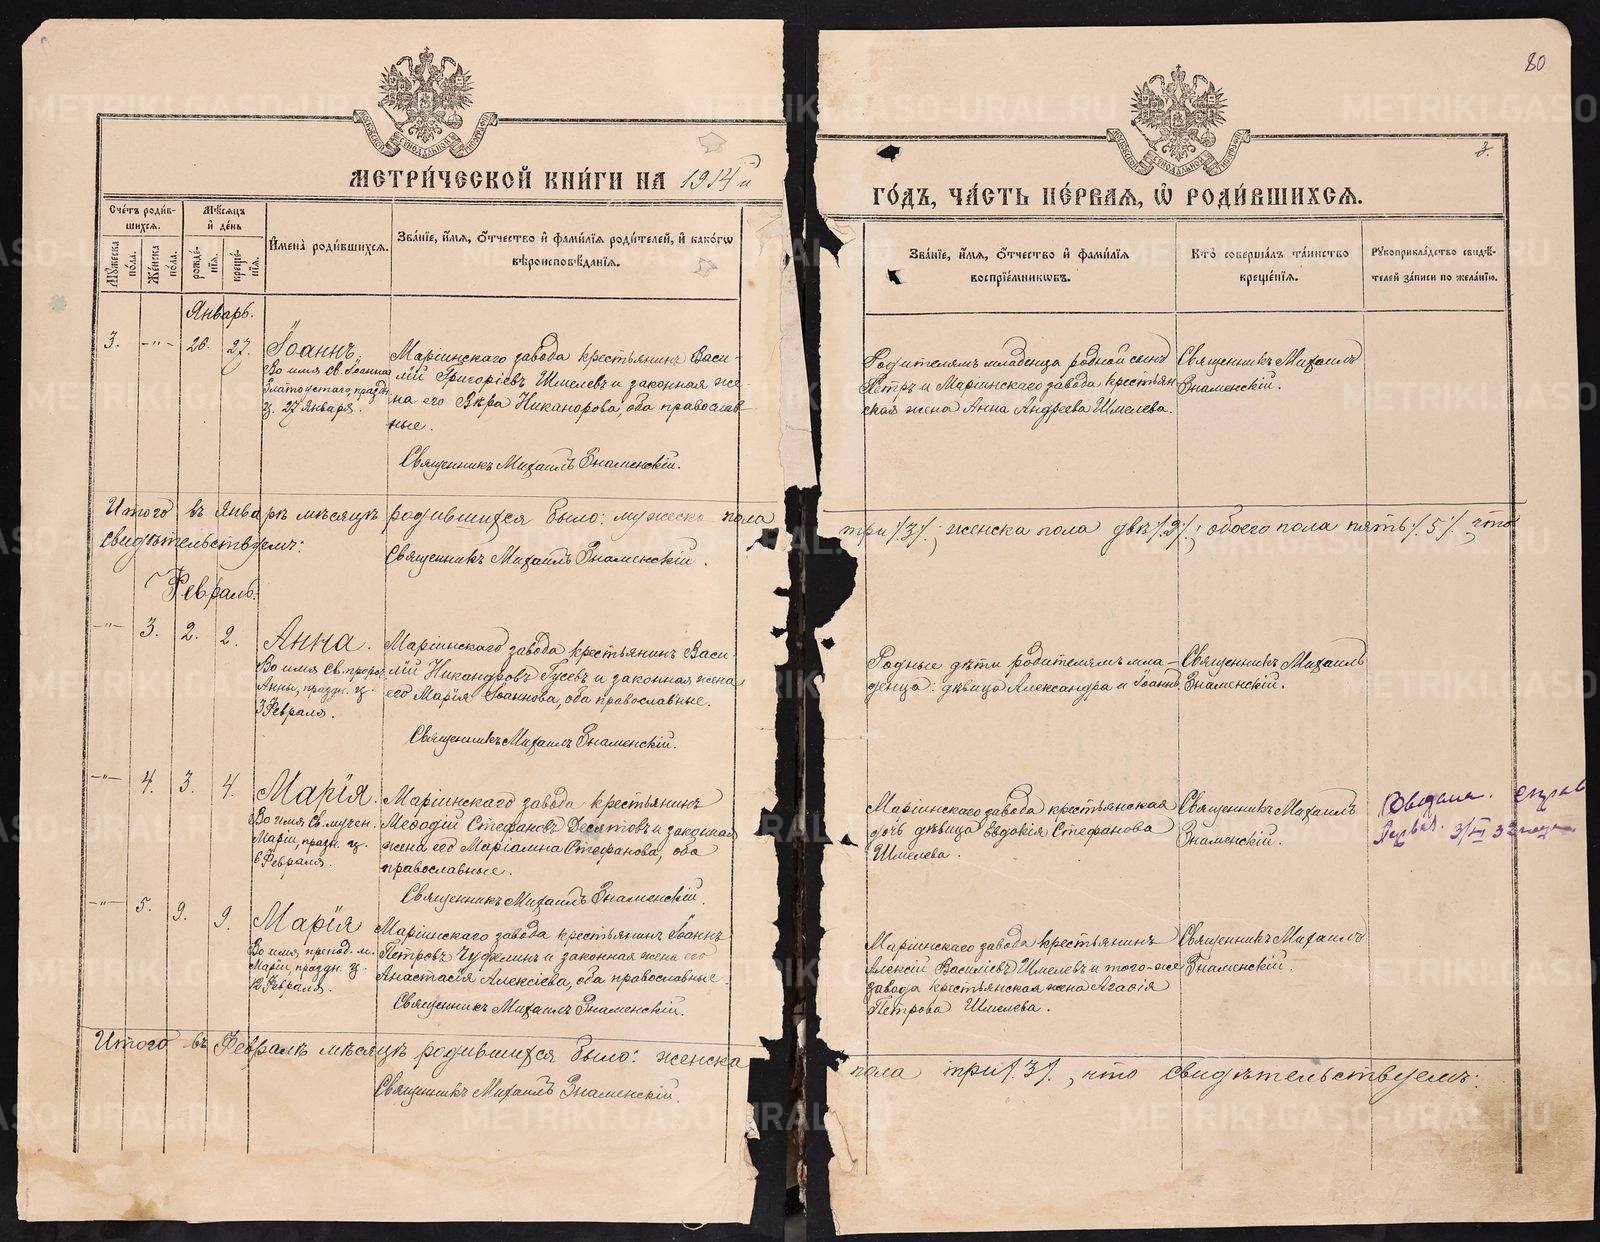 80
3.
МЕТРИЧЕСКОЙ КНИГИ НА 1914й
ГОДЪ, ЧАСТЬ ПЕРВАЯ, Ѡ РОДИВШИХСЯ.
Счетъ родившихся.
Мужеска пола.
Женска пола.
Мѣсяцъ и день
рожденія.
крещенія.
Имена родившихся.
Званіе, имя, отчество и фамилія родителей, и какогѡ вѣроисповѣданія.
Званіе, имя, отчество и фамилія воспріемниковъ.
Кто совершалъ таинство крещенія.
Рукоприкладство свидѣтелей записи по желанію.
Январь.
3. -"- 26. 27.
Іоаннъ.
Во имя Св. Іоанна
Златоустаго, праздн.
ц. 27 Января.
Маріинскаго завода крестьянинъ Васи-
лій Григоріевъ Шмелевъ и законная же-
на его Вѣра Никанорова, оба православ-
ные.
Священникъ Михаилъ Знаменскій.
Родителямъ младенца родной сынъ
Петръ и Маріинскаго завода крестьян-
ская жена Анна Андреева Шмелева.
Священникъ Михаилъ
Знаменскій.
Итого въ Январѣ мѣсяцѣ родившихся было: мужеска пола
три /3/, женска пола двѣ /2/, обоего пола пять /5/, что
свидѣтельствуемъ:
Священникъ Михаилъ Знаменскій.
Февраль.
-"- 3. 2. 2.
Анна.
Во имя Св. прор.
Анны, праздн. ц.
3 Февраля.
Маріинскаго завода крестьянинъ Васи-
лій Никандровъ Гусевъ и законная жена
его Марія Іоаннова, оба православные.
Священникъ Михаилъ Знаменскій.
Родные дѣти родителямъ мла-
денца: дѣвица Александра и Іоаннъ
Священникъ Михаилъ
Знаменскій.
-"- 4. 3. 4.
Марія.
Во имя Св. мучен.
Маріи, праздн. ц.
6 Февраля.
Маріинскаго завода крестьянинъ
Меѳодій Стефановъ Десятовъ и законная
жена его Маріамна Стефанова, оба
православные.
Священникъ Михаилъ Знаменскій.
Маріинскаго завода крестьянская
дочь дѣвица Евдокія Стефанова
Шмелева.
Священникъ Михаилъ
Знаменскій.
-"- 5. 9. 9.
Марія
Во имя препод. м.
Маріи, праздн. ц.
12 Февраля.
Маріинскаго завода крестьянинъ Іоаннъ
Петровъ и законная жена его
Анастасія Алексіева, оба православные.
Священникъ Михаилъ Знаменскій.
Маріинскаго завода крестьянинъ
Алексій Василіевъ Шмелевъ и того-же
завода крестьянская жена Агафія
Петрова Шмелева.
Священникъ Михаилъ
Знаменскій.
Итого въ Февралѣ мѣсяцѣ родившихся было: женска
пола три /3/, что свидѣтельствуемъ:
Священникъ Михаилъ Знаменскій.
METRIKI.GASO-URAL.RU